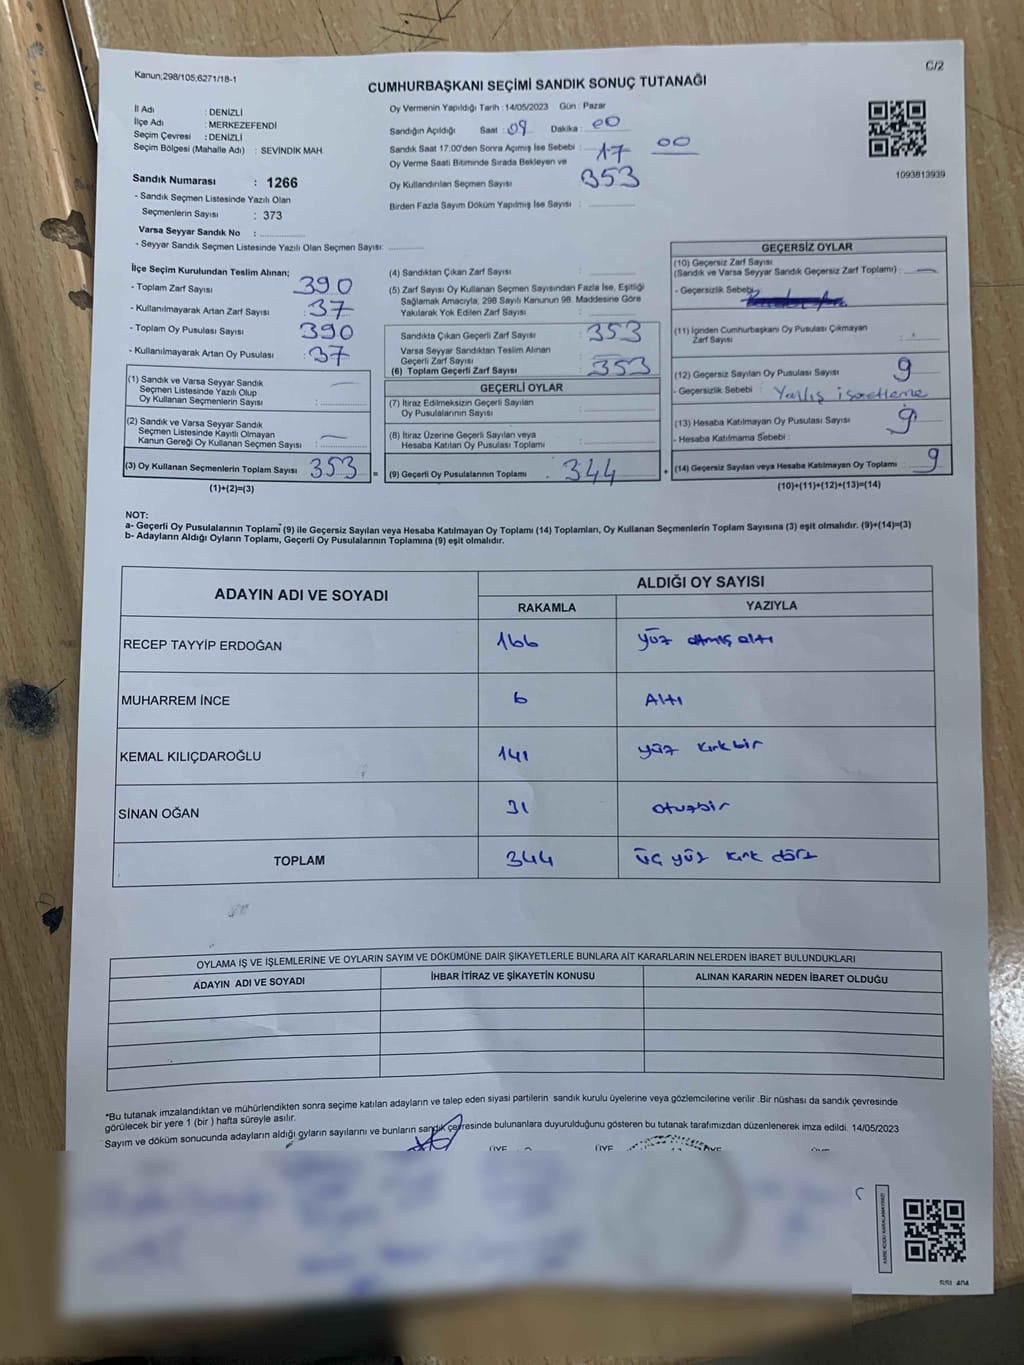 Kanun;298/105;6271/18-1
C/2
CUMHURBAŞKANI SEÇİMİ SANDIK SONUÇ TUTANAĞI
İl Adı : DENİZLİ
İlçe Adı : MERKEZEFENDİ
Seçim Çevresi : DENİZLİ
Seçim Bölgesi (Mahalle Adı) : SEVİNDİK MAH.
Oy Vermenin Yapıldığı Tarih : 14/05/2023 Gün : Pazar
Sandığın Açıldığı Saat : 09 Dakika : 00
Sandık Saat 17:00'den Sonra Açımış İse Sebebi : 17 00
Oy Verme Saati Bitiminde Sırada Bekleyen ve
Oy Kullandırılan Seçmen Sayısı 353
Birden Fazla Sayım Döküm Yapılmış İse Sayısı :
1093813939
Sandık Numarası : 1266
- Sandık Seçmen Listesinde Yazılı Olan
Seçmenlerin Sayısı : 373
Varsa Seyyar Sandık No :
- Seyyar Sandık Seçmen Listesinde Yazılı Olan Seçmen Sayısı:
İlçe Seçim Kurulundan Teslim Alınan;
- Toplam Zarf Sayısı 390
- Kullanılmayarak Artan Zarf Sayısı : 37
- Toplam Oy Pusulası Sayısı 390
- Kullanılmayarak Artan Oy Pusulası : 37
(1) Sandık ve Varsa Seyyar Sandık
Seçmen Listesinde Yazılı Olup
Oy Kullanan Seçmenlerin Sayısı :
(2) Sandık ve Varsa Seyyar Sandık
Seçmen Listesinde Kayıtlı Olmayan
Kanun Gereği Oy Kullanan Seçmen Sayısı :
(3) Oy Kullanan Seçmenlerin Toplam Sayısı 353 =
(1)+(2)=(3)
(4) Sandıktan Çıkan Zarf Sayısı :
(5) Zarf Sayısı Oy Kullanan Seçmen Sayısından Fazla İse, Eşitliği
Sağlamak Amacıyla, 298 Sayılı Kanunun 98. Maddesine Göre
Yakılarak Yok Edilen Zarf Sayısı :
Sandıkta Çıkan Geçerli Zarf Sayısı : 353
Varsa Seyyar Sandıktan Teslim Alınan
Geçerli Zarf Sayısı
(6) Toplam Geçerli Zarf Sayısı : 353
GEÇERLİ OYLAR
(7) İtiraz Edilmeksizin Geçerli Sayılan
Oy Pusulalarının Sayısı :
(8) İtiraz Üzerine Geçerli Sayılan veya
Hesaba Katılan Oy Pusulası Toplamı :
(9) Geçerli Oy Pusulalarının Toplamı . 344 +
GEÇERSİZ OYLAR
(10) Geçersiz Zarf Sayısı
(Sandık ve Varsa Seyyar Sandık Geçersiz Zarf Toplamı) : —
- Geçersizlik Sebebi
(11) İçinden Cumhurbaşkanı Oy Pusulası Çıkmayan
Zarf Sayısı :
(12) Geçersiz Sayılan Oy Pusulası Sayısı 9
- Geçersizlik Sebebi : Yanlış işaretleme
(13) Hesaba Katılmayan Oy Pusulası Sayısı : 9
- Hesaba Katılmama Sebebi :
(14) Geçersiz Sayılan veya Hesaba Katılmayan Oy Toplamı : 9
(10)+(11)+(12)+(13)=(14)
NOT:
a- Geçerli Oy Pusulalarının Toplamı (9) ile Geçersiz Sayılan veya Hesaba Katılmayan Oy Toplamı (14) Toplamları, Oy Kullanan Seçmenlerin Toplam Sayısına (3) eşit olmalıdır. (9)+(14)=(3)
b- Adayların Aldığı Oyların Toplamı, Geçerli Oy Pusulalarının Toplamına (9) eşit olmalıdır.
ADAYIN ADI VE SOYADI ALDIĞI OY SAYISI
RAKAMLA YAZIYLA
RECEP TAYYİP ERDOĞAN 166 yüz atmış altı
MUHARREM İNCE 6 Altı
KEMAL KILIÇDAROĞLU 141 yüz kırkbir
SİNAN OĞAN 31 otuzbir
TOPLAM 344 üç yüz kırk dört
OYLAMA İŞ VE İŞLEMLERİNE VE OYLARIN SAYIM VE DÖKÜMÜNE DAİR ŞİKAYETLERLE BUNLARA AİT KARARLARIN NELERDEN İBARET BULUNDUKLARI
ADAYIN ADI VE SOYADI İHBAR İTİRAZ VE ŞİKAYETİN KONUSU ALINAN KARARIN NEDEN İBARET OLDUĞU
*Bu tutanak imzalandıktan ve mühürlendikten sonra seçime katılan adayların ve talep eden siyasi partilerin sandık kurulu üyelerine veya gözlemcilerine verilir .Bir nüshası da sandık çevresinde
görülecek bir yere 1 (bir ) hafta süreyle asılır.
Sayım ve döküm sonucunda adayların aldığı oyların sayılarını ve bunların sandık çevresinde bulunanlara duyurulduğunu gösteren bu tutanak tarafımızdan düzenlenerek imza edildi. 14/05/2023
ÜYE ÜYE ÜYE